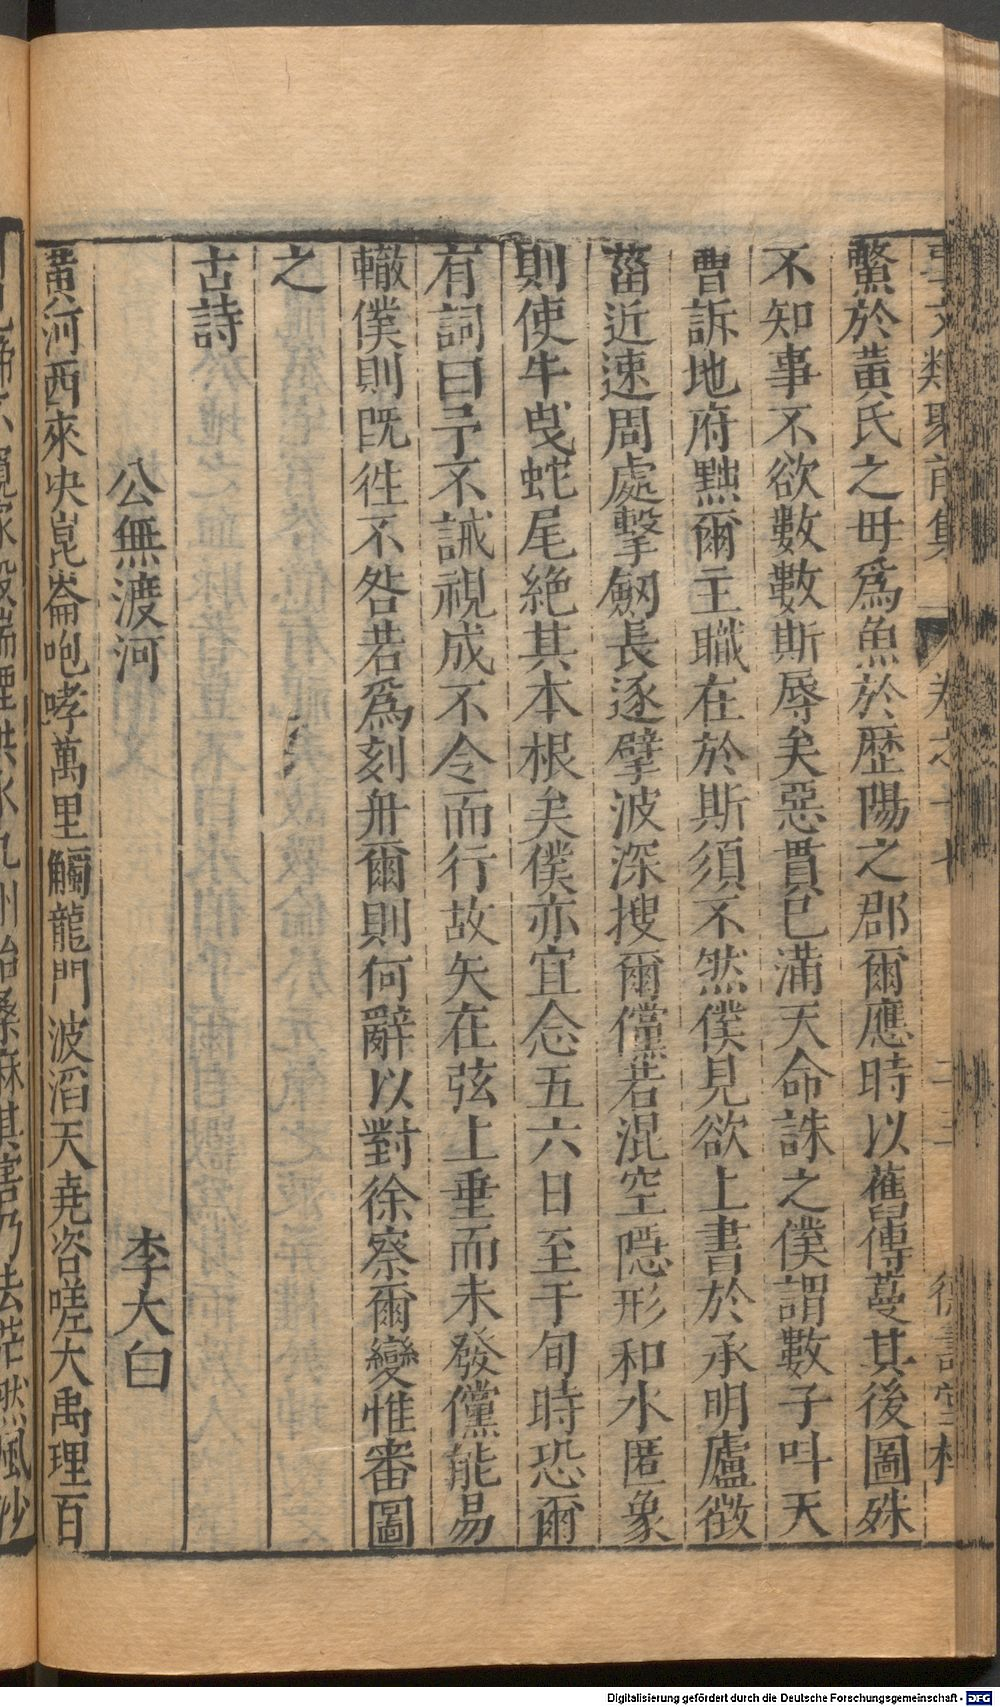 事文類聚前集 卷之十七 二十三 德壽堂梓
鱉於黃氏之母爲魚於歷陽之郡爾應時以舊傳蔓其後圖殊
不知事不欲數數斯辱矣惡貫已滿天命誅之僕謂數子叫天
曹訴地府黜爾主職在於斯須不然僕見欲上書於承明廬徴
菑近速周處擊劒長逐擘波深搜爾儻若混空隱形和水匿象
則使牛曵蛇尾絶其本根矣僕亦宜念五六日至于旬時恐爾
有詞曰予不誡視成不令而行故矢在弦上垂而未發儻能易
轍僕則旣徃不咎若爲刻舟爾則何辭以對徐察爾變惟審圖
之
古詩
公無渡河 李大白
黃河西來决崑崙咆哮萬里觸龍門波滔天堯咨嗟大禹理百
川兒啼不窺家殺湍堙洪水九州始蠶麻其害乃去茫然風沙
Digitalisierung gefördert durch die Deutsche Forschungsgemeinschaft - DFG